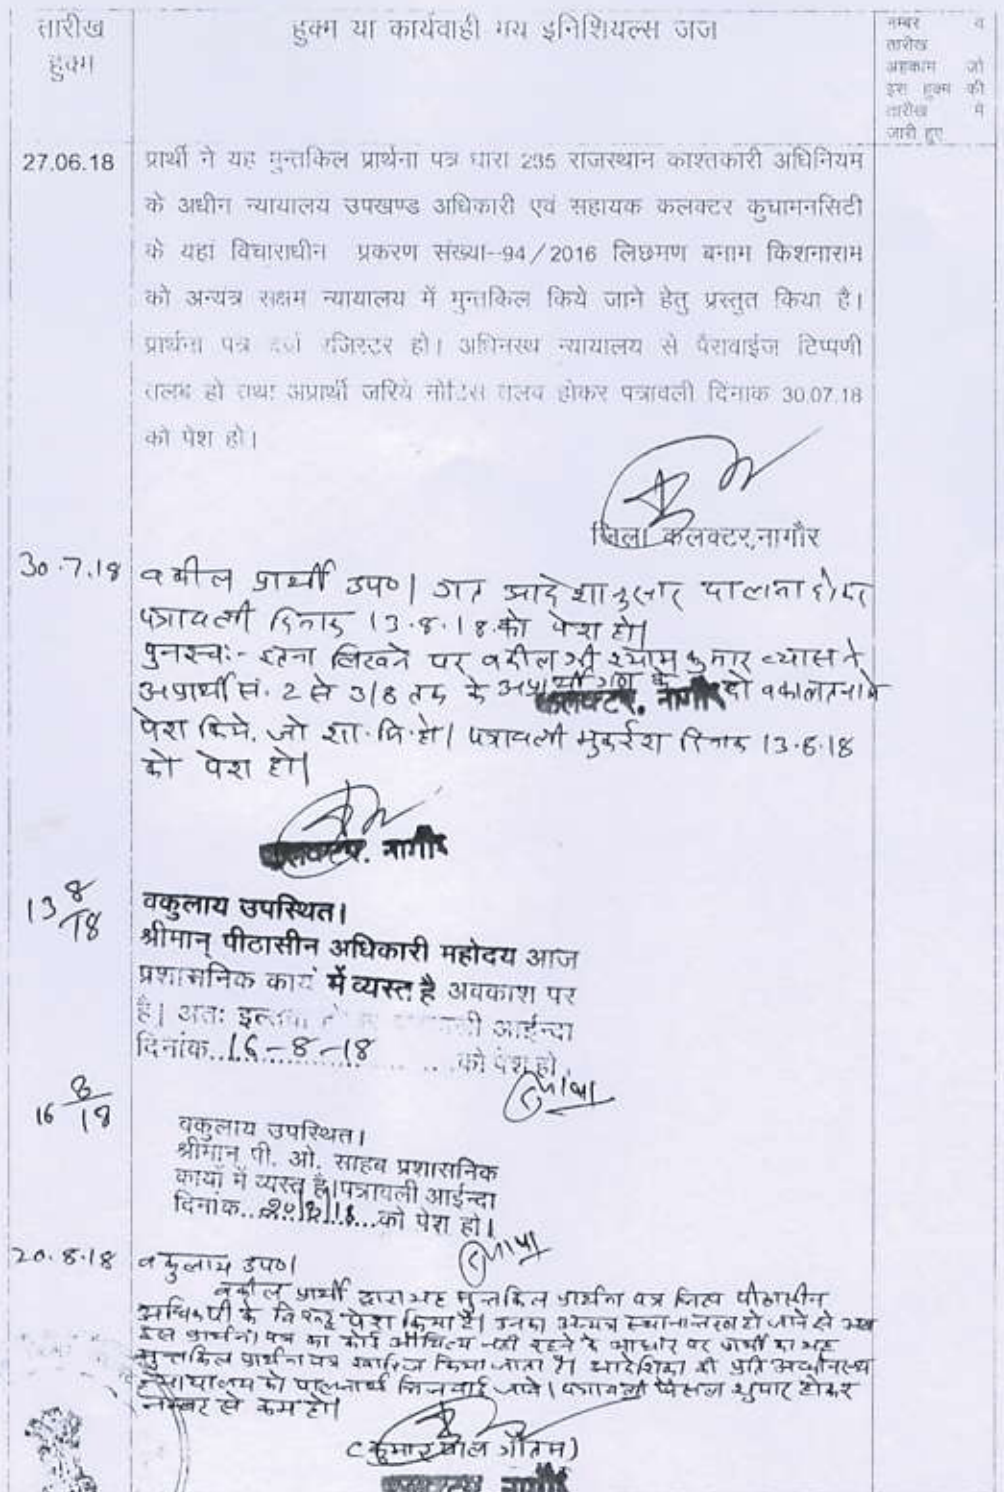 तारीख
हुक्म
हुक्म या कार्यवाही मय इनिशियल्स जज
नम्बर व
तारीख
अहकाम जो
इस हुक्म की
तारीख में
जारी हुए
27.06.18
प्रार्थी ने यह मुन्तकिल प्रार्थना पत्र धारा 235 राजस्थान काश्तकारी अधिनियम
के अधीन न्यायालय उपखण्ड अधिकारी एवं सहायक कलक्टर कुचामनसिटी
के यहां विचाराधीन प्रकरण संख्या--94/2016 लिछमण बनाम किशनाराम
को अन्यत्र सक्षम न्यायालय में मुन्तकिल किये जाने हेतु प्रस्तुत किया है।
प्रार्थना पत्र दर्ज रजिस्टर हो। अधिनस्थ न्यायालय से पैरावाईज टिप्पणी
तलब हो तथा अप्रार्थी जरिये नोटिस तलब होकर पत्रावली दिनांक 30.07.18
को पेश हो।
जिला कलक्टर,नागौर
30.7.18
वकील प्रार्थी उप०। गत आदेशानुसार पालना होकर
पत्रावली दिनांक 13.8.18 को पेश हो।
पुनश्च:- इतना लिखने पर वकील श्री श्याम कुमार व्यास ने
अप्रार्थी सं. 2 से 3/8 तक के अप्रार्थीगण के दो वकालतनामे
कलक्टर, नागौर
पेश किये. जो शा.मि.हो। पत्रावली मुकर्ररा दिनांक 13.8.18
को पेश हो।
कलक्टर, नागौर
13 8/18
वकुलाय उपस्थित।
श्रीमान् पीठासीन अधिकारी महोदय आज
प्रशासनिक कार्य में व्यस्त है अवकाश पर
है। अतः आईन्दा
दिनांक..16-8-18 को पेश हो.
16 8/18
वकुलाय उपस्थित।
श्रीमान् पी. ओ. साहब प्रशासनिक
कार्यो में व्यस्त है।पत्रावली आईन्दा
दिनांक...20/8/18...को पेश हो।
20.8.18
वकुलाय उप०।
वकील प्रार्थी द्वारा यह मुन्तकिल प्रार्थना पत्र जिस पीठासीन
अधिकारी के विरूद्ध पेश किया है। उनका अन्यत्र स्थानान्तरण हो जाने से अब
इस प्रार्थना पत्र का कोई औचित्य नही रहने के आधार पर प्रार्थी का यह
मुन्तकिल प्रार्थना पत्र खारिज किया जाता है। आदेशिका की प्रति अधीनस्थ
न्यायालय को पालनार्थ भिजवाई जावे। पत्रावली फैसल शुमार होकर
नम्बर से कम हो।
(कुमार पाल गौतम)
कलक्टर, नागौर